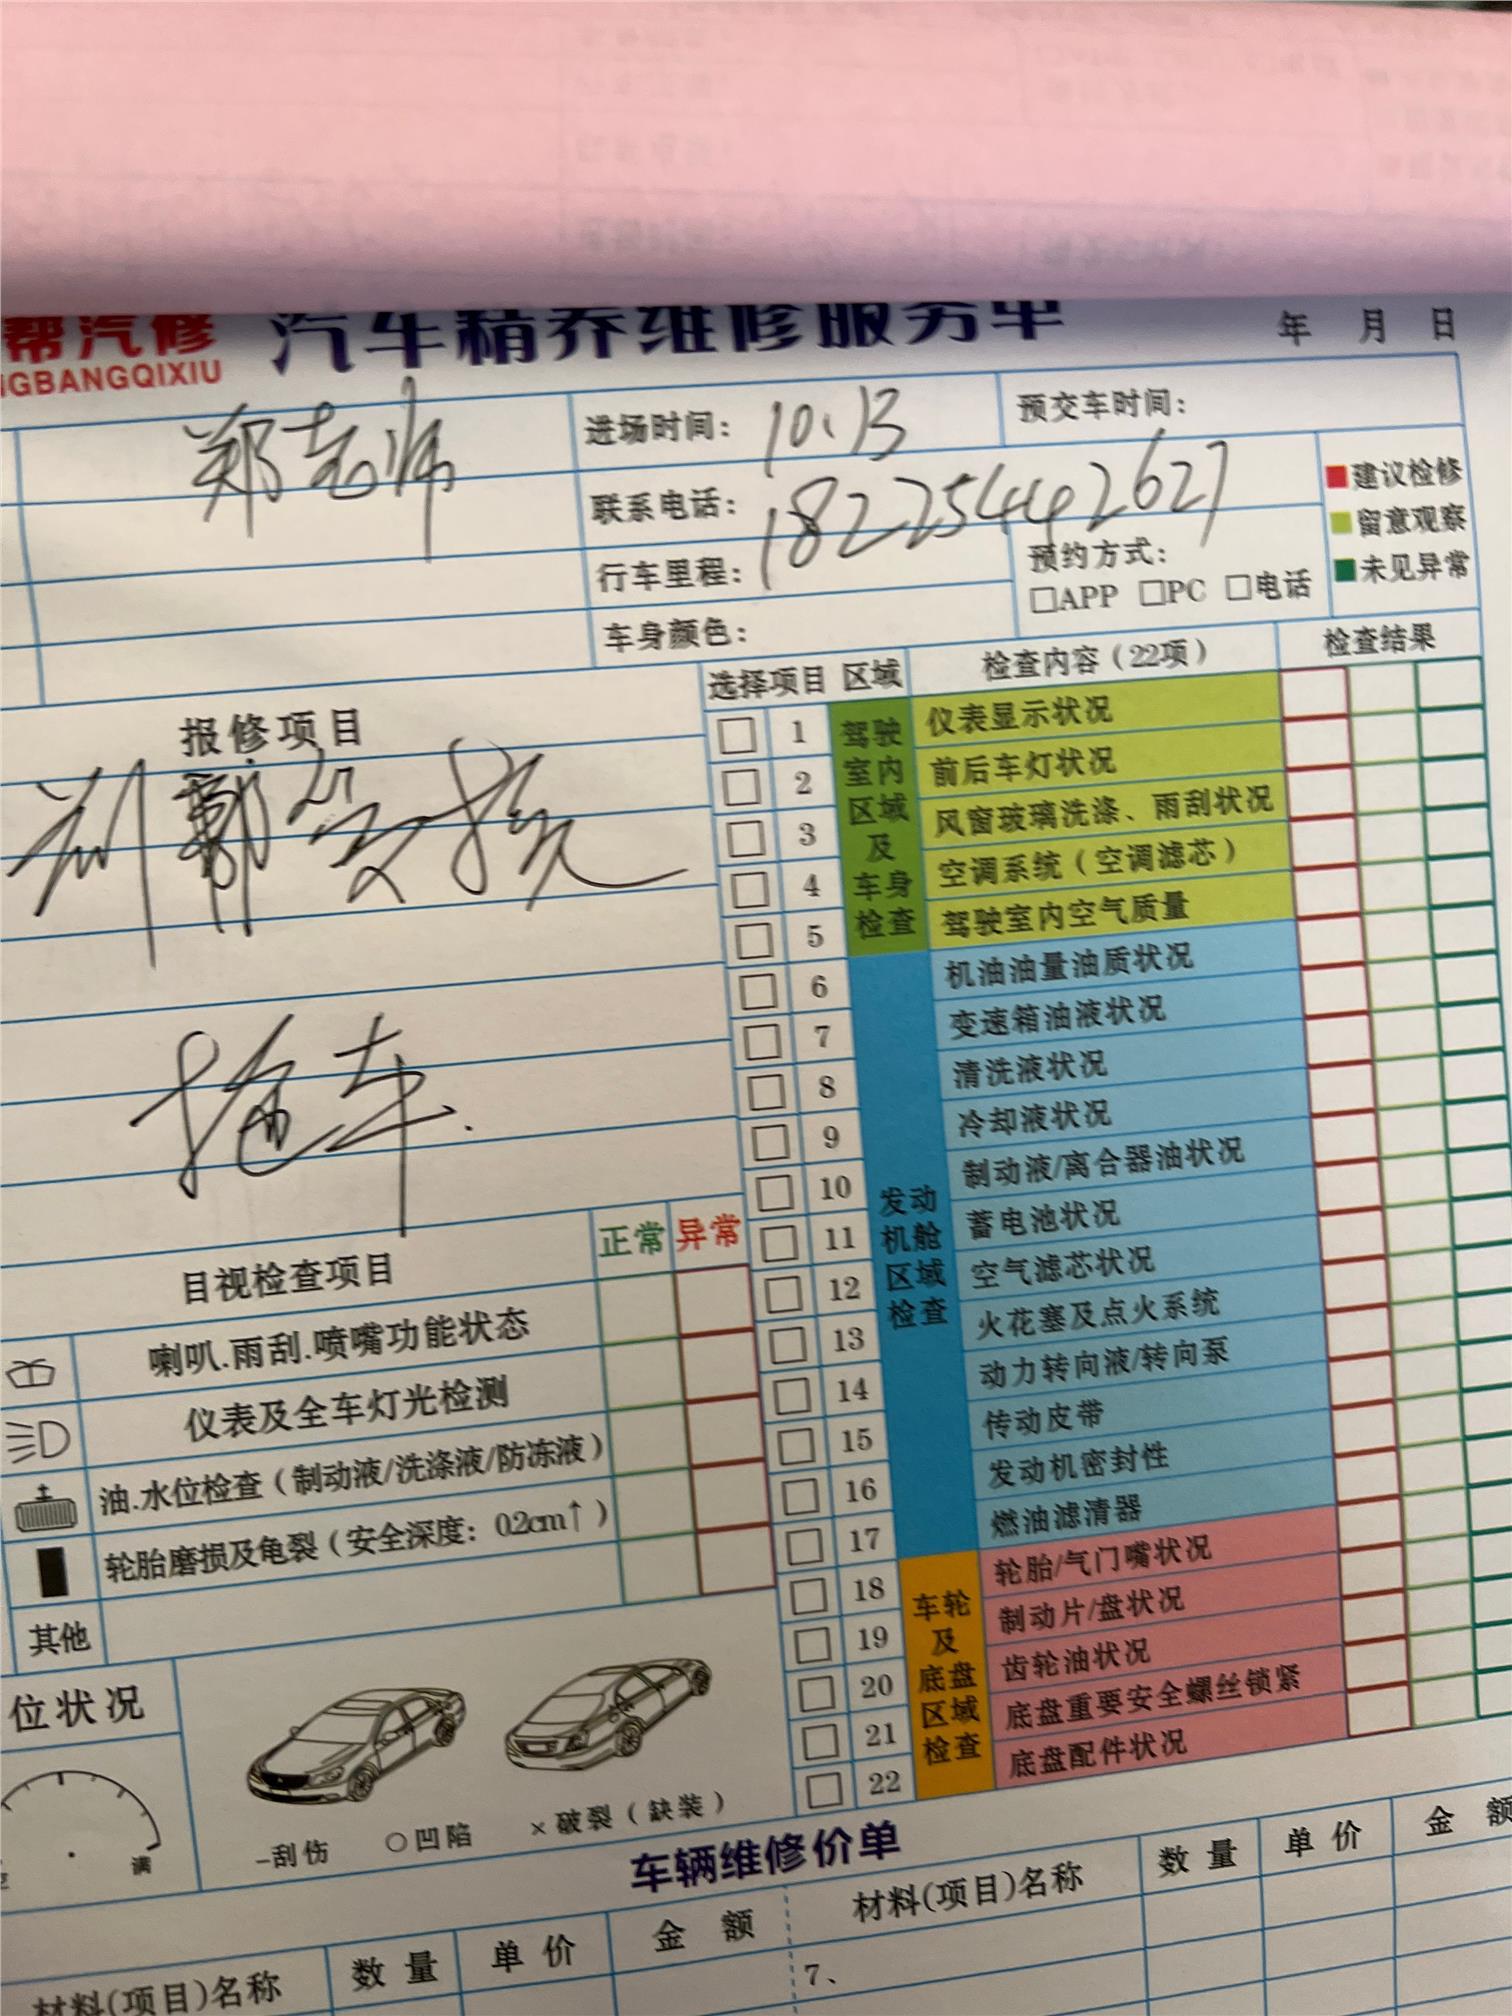 帮汽修 汽车精养维修服务单 年 月 日
GBANGQIXIU
郑老师 进场时间：10.13 预交车时间：
联系电话：18225442627
行车里程： 预约方式：
□APP □PC □电话
车身颜色：
建议检修
留意观察
未见异常
报修项目
拖车.
目视检查项目 正常 异常
喇叭.雨刮.喷嘴功能状态
仪表及全车灯光检测
油.水位检查（制动液/洗涤液/防冻液）
轮胎磨损及龟裂（安全深度：0.2cm↑）
其他
选择项目 区域 检查内容（22项） 检查结果
驾驶室内区域及车身检查
1 仪表显示状况
2 前后车灯状况
3 风窗玻璃洗涤、雨刮状况
4 空调系统（空调滤芯）
5 驾驶室内空气质量
发动机舱区域检查
6 机油油量油质状况
7 变速箱油液状况
8 清洗液状况
9 冷却液状况
10 制动液/离合器油状况
11 蓄电池状况
12 空气滤芯状况
13 火花塞及点火系统
14 动力转向液/转向泵
15 传动皮带
16 发动机密封性
17 燃油滤清器
车轮及底盘区域检查
18 轮胎/气门嘴状况
19 制动片/盘状况
20 齿轮油状况
21 底盘重要安全螺丝锁紧
22 底盘配件状况
位状况
满
-刮伤 ○凹陷 ×破裂（缺装）
车辆维修价单
材料(项目)名称 数量 单价 金额 材料(项目)名称 数量 单价 金额
7、